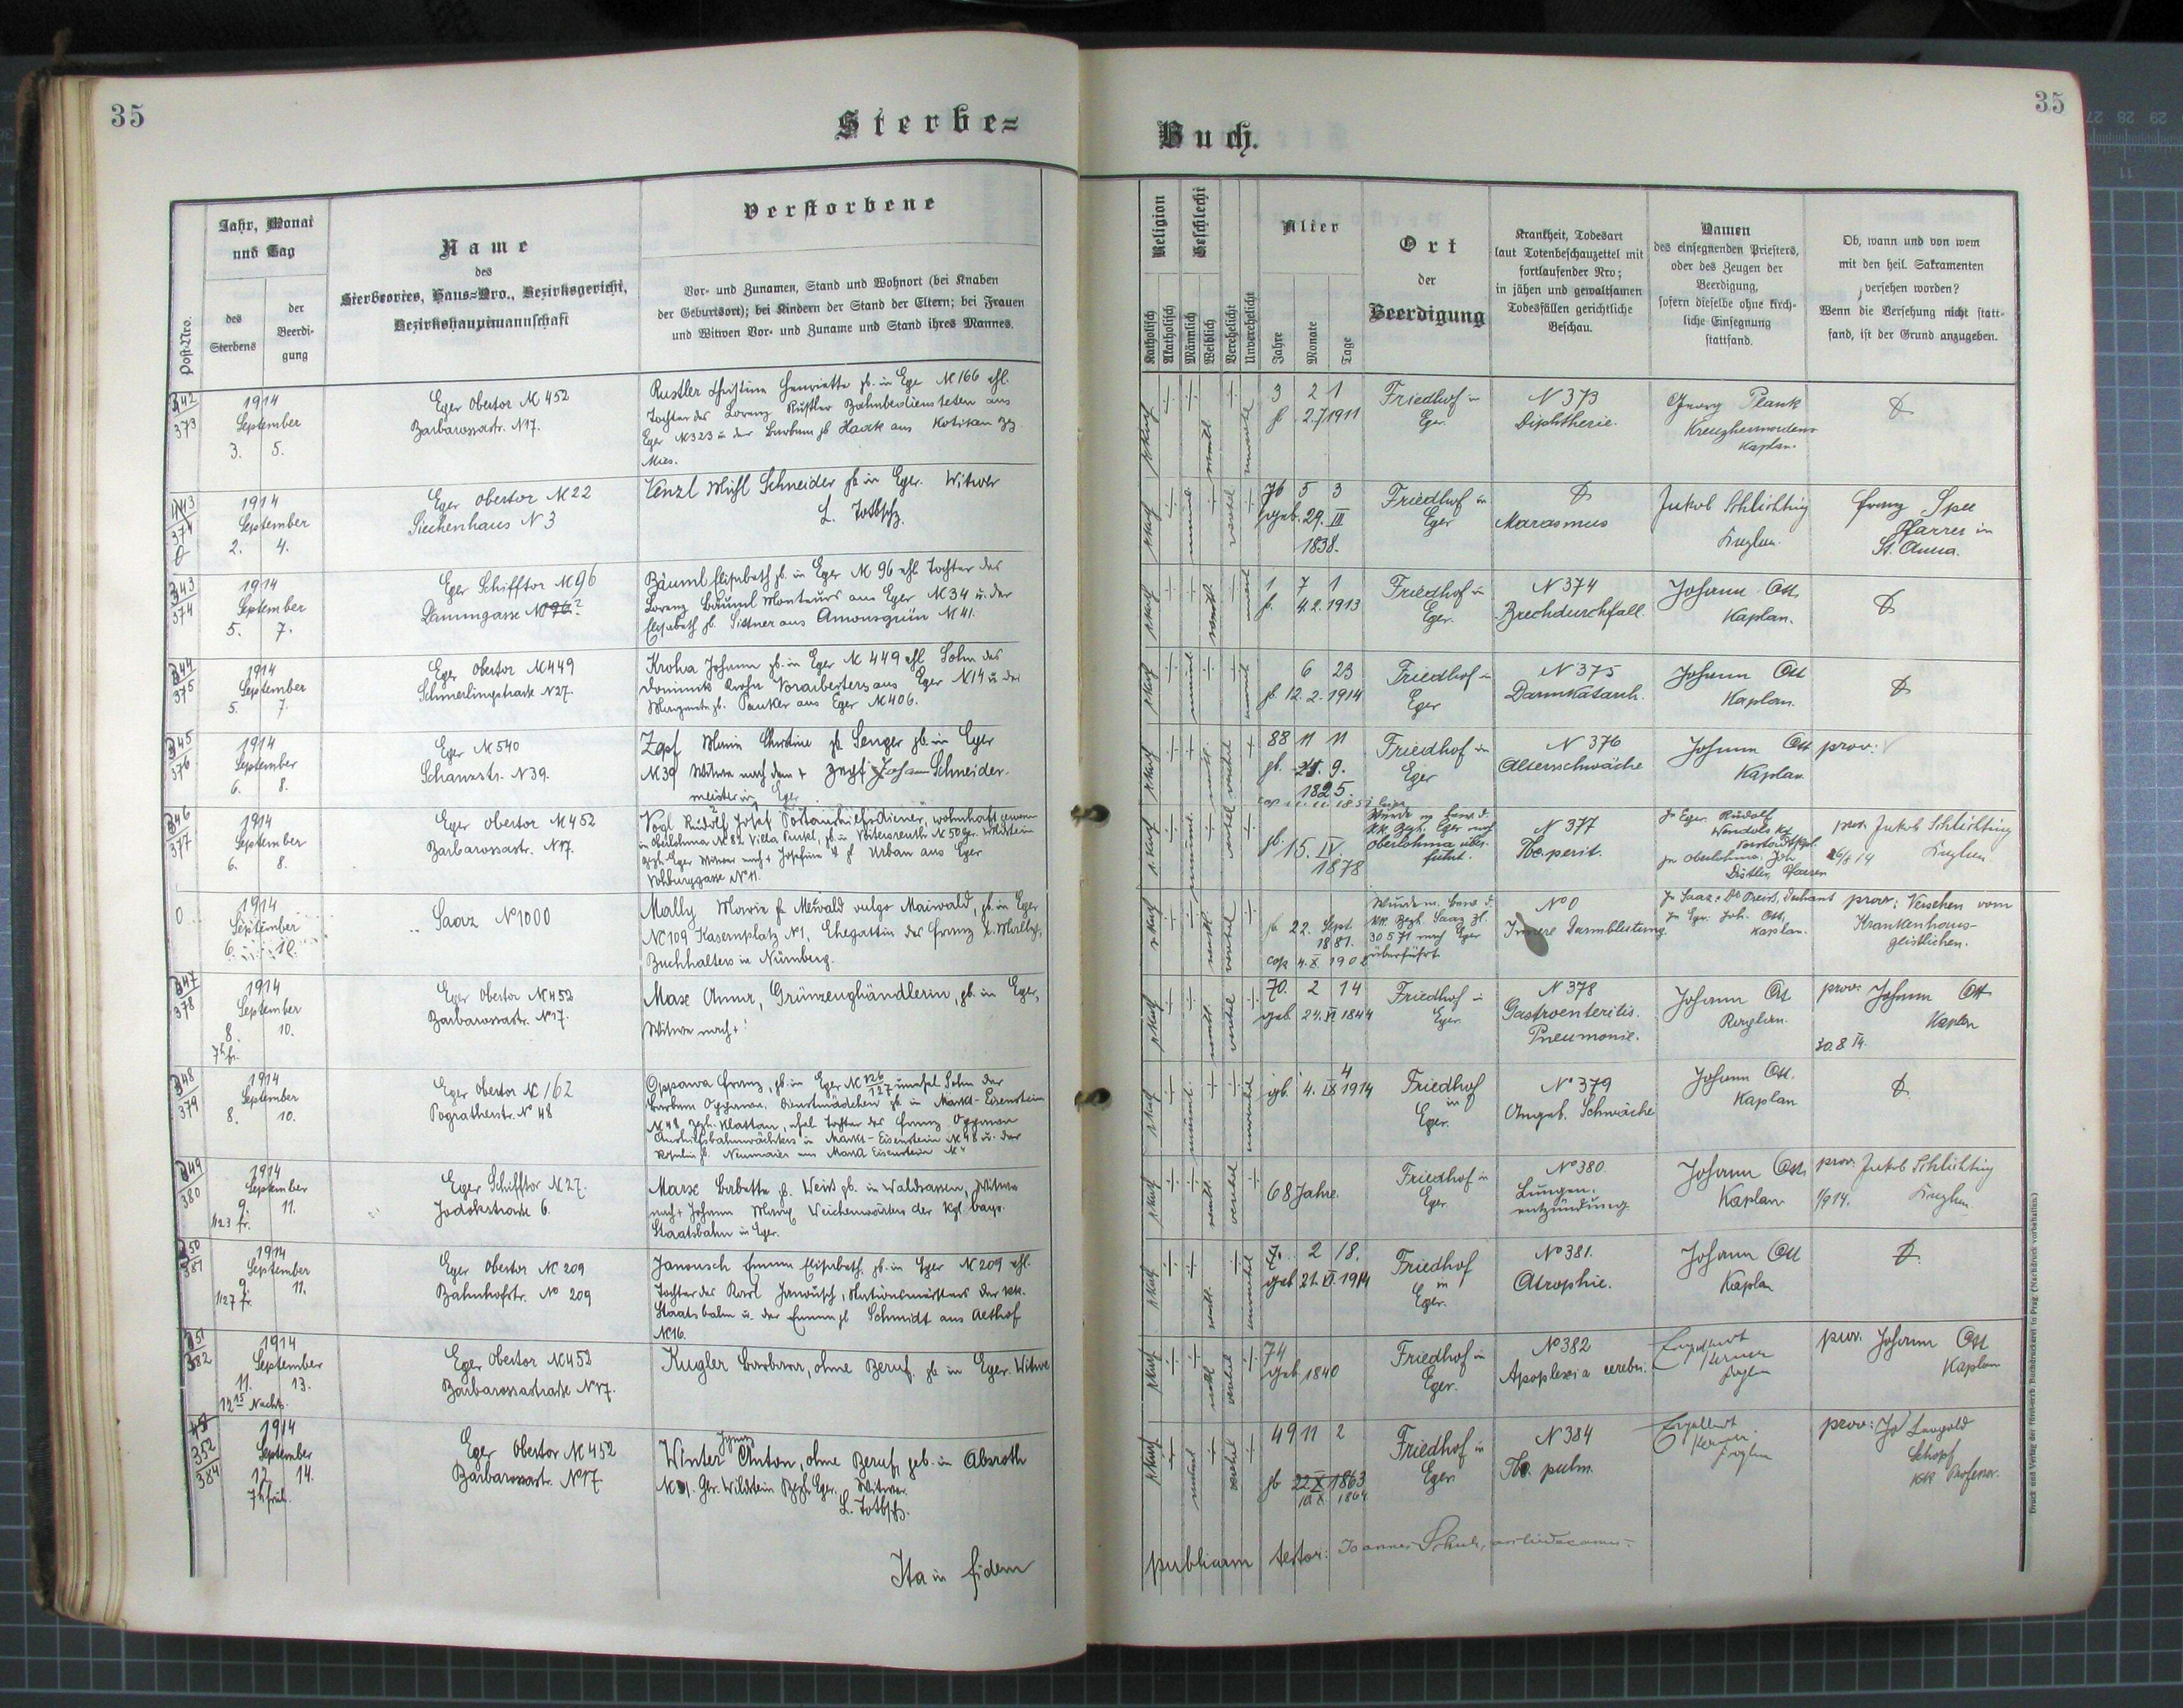 35
Sterbe=
Buch.
35
Post-Nro.
Jahr, Monat
und Tag
des
Sterbens
der
Beerdi-
gung
Name
des
Sterbeortes, Haus=Nro., Bezirksgericht,
Bezirkshauptmannschaft
Verstorbene
Vor- und Zunamen, Stand und Wohnort (bei Knaben
der Geburtsort); bei Kindern der Stand der Eltern; bei Frauen
und Witwen Vor- und Zuname und Stand ihres Mannes.
Religion
Katholisch
Akatholisch
Geschlecht
Männlich
Weiblich
Verehelicht
Unverehelicht
Alter
Jahre
Monate
Tage
Ort
der
Beerdigung
Krankheit, Todesart
laut Totenbeschauzettel mit
fortlaufender Nro;
in jähen und gewaltsamen
Todesfällen gerichtliche
Beschau.
Namen
des einsegnenden Priesters,
oder des Zeugen der
Beerdigung,
sofern dieselbe ohne kirch-
liche Einsegnung
stattfand.
Ob, wann und von wem
mit den heil. Sakramenten
versehen worden?
Wenn die Versehung nicht statt-
fand, ist der Grund anzugeben.
342
373
1914
September
3. 5.
Eger Obertor № 452
Barbarossastr. N17.
Rustler Christina Henriette gb. in Eger № 166 ehl.
Tochter des Lorenz Rustler Bahnbediensteten aus
Eger № 323 u. der Barbara gb Haack aus Kotikan
Mies.
3 2 1
2.7 1911
Friedhof in
Eger.
N 373
Diphtherie.
Georg Plank
Kreuzherrnordens
Kaplan.
374
1914
September
2. 4.
Eger Obertor № 22
Siechenhaus N 3
Wenzl Michl Schneider gb in Eger. Witwer
L. Totbsch.
76 5 3
geb. 29. III
1838.
Friedhof in
Eger
Marasmus
Jakob Schlichting
Kuglan
Franz Spee
Pfarrer in
St. Anna.
343
374
1914
September
5. 7.
Eger Schifftor № 96
Dammgasse
Bäuml Elisabeth gb. in Eger № 96 ehl Tochter des
Lorenz Bäuml Monteurs aus Eger № 34 u. der
Elisabeth gb. Sittner aus Amonsgrün № 41.
1 7 1
4.2.1913
Friedhof in
Eger.
N 374
Brechdurchfall.
Johann Ott
Kaplan.
344
375
1914
September
5. 7.
Eger Obertor № 449
Schmerlingstraße N 27.
Kroha Johann gb. in Eger № 449 ehl Sohn des
Dominik Kroha Vorarbeiters aus Eger N 14 u. der
Margareta gb. Pankler aus Eger № 406.
6 23
gb. 12.2.1914
Friedhof in
Eger
N 375
Darmkatarrh.
Johann Ott
Kaplan.
345
376
1914
September
6. 8.
Eger № 540
Schanzstr. N 39.
Zapf Maria Christine gb Senger gb. in Eger
№ 39 Witwe nach dem + Zapf Johann Schneider-
meister in Eger
88 11 11
gb. 25. 9.
1825.
Friedhof in
Eger
N 376
Altersschwäche
Johann Ott
Kaplan
prov:
346
377
1914
September
6. 8.
Eger Obertor № 452
Barbarossastr. N 17.
Vogl Rudolf Josef Postaushilfsdiener, wohnhaft gewesen
in Oberlohma № 82 Villa gb. in Voitersreuth № 50 Ger. Wildstein
Bezh. Eger Witwer nach + Josefine V gb Urban aus Eger
Vohburggasse N 11.
gb. 15. IV.
1878
Leiche
Wurde m. Bew. d.
kk. Bezh. Eger nach
Oberlohma über-
führt.
N 377
Tbc. perit.
In Eger. Rudolf
In Oberlohma: Joh
Distler, Pfarrer
prov. Jakob Schlichting
26/8 14
Kuglan
0
1914
September
6. 10.
Saaz № 1000
Mally Marie gb Meiwald vulgo Maiwald, gb. in Eger
№ 109 Kasernplatz N 1, Ehegattin des Franz X. Mally,
Buchhalters in Nürnberg.
gb. 22. Sept.
1881.
cop 4. X. 1902
Wurde m. Bew. d.
kk. Bezh. Saaz Zl.
30571 nach Eger
überführt
N 0
Innere Darmblutung.
In Saaz: Dechant
In Eger: Joh. Ott,
Kaplan.
prov: Versehen vom
Krankenhaus-
geistlichen.
347
378
1914
September
8. 10.
7h fr.
Eger Obertor № 452
Barbarossastr. N 17.
Max Anna, Grünzeughändlerin, gb. in Eger,
Witwe nach +
70. 2 14
geb. 24. VI. 1844
Friedhof in
Eger
N 378
Gastroenteritis.
Pneumonie.
Johann Ott
Kaplan.
prov: Johann Ott
Kaplan
30.8 14.
348
379
1914
September
8. 10.
Eger Obertor № 162
Pograthestr. № 48
Oppawa Franz, gb. in Eger № 126/127 unehel Sohn der
Barbara Oppawa, Dienstmädchen gb in Markt-Eisenstein
№ 48, Bezh. Klattau, ehel Tochter des Franz Oppawa
Aushilfsbahnwächters in Markt-Eisenstein № 48 u. der
gb. Neumaier aus Markt Eisenstein №
4
gb. 4. IX 1914
Friedhof
in
Eger.
N 379
Angeb. Schwäche
Johann Ott.
Kaplan
349
380
1914
September
9. 11.
1/23 fr.
Eger Schifftor № 27.
Jodokstraße 6.
Marx Babette gb. Weiß gb. in Waldsassen, Witwe
nach + Johann Marx Weichenwärters der kgl. bayr.
Staatsbahn in Eger.
68 Jahre.
Friedhof in
Eger.
N° 380.
Lungen-
entzündung
Johann Ott
Kaplan
prov: Jakob Schlichting
1/9 14.
Kuglan
350
381
1914
September
9. 11.
1/27 fr.
Eger Obertor № 209
Bahnhofstr. № 209
Janousch Emma Elisabeth gb. in Eger № 209 ehl.
Tochter des Karl Janousch, Stationsmeisters der kk.
Staatsbahn u. der Emma gb Schmidt aus Aesthof
№ 16.
2 18.
geb. 21. VI. 1914
Friedhof
in
Eger.
N° 381.
Atrophie.
Johann Ott
Kaplan
351
382
1914
September
11. 13.
12 15 Nachts.
Eger Obertor № 452
Barbarossastraße N 17.
Kugler Barbara, ohne Beruf, gb in Eger. Witwe
74
geb 1840
Friedhof in
Eger.
N° 382
Apoplexia cerebri.
prov. Johann Ott
Kaplan
352
384
1914
September
12. 14.
7h früh.
Eger Obertor № 452
Barbarossastr. N° 17
Winter Anton, ohne Beruf, geb. in Absroth
№ 31. Ger. Wildstein Bezh. Eger. Witwer.
L. Totbsch.
49 11 2
gb 22 X 1863
10. X. 1864
Friedhof in
Eger.
N 384
Tbc. pulm.
prov: Leopold
Schopf
kk Professor.
Ita in fidem
publicam testor: Joannes
Druck und Verlag der fürst-erzb. Buchdruckerei in Prag. (Nachdruck vorbehalten.)